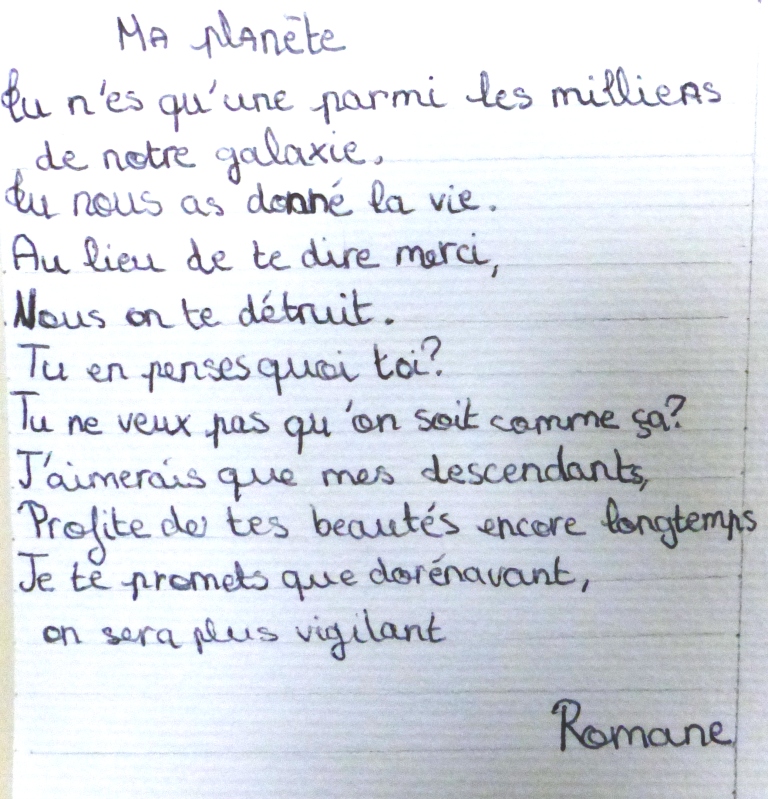 MA plANète
tu n'es qu'une parmi les millieRs
de notre galaxie.
tu nous as donné la vie.
Au lieu de te dire merci,
Nous on te détruit.
Tu en penses quoi toi?
Tu ne veux pas qu'on soit comme ça?
J'aimerais que mes descendants,
Profite de tes beautés encore longtemps
Je te promets que dorénavant,
on sera plus vigilant
Romane